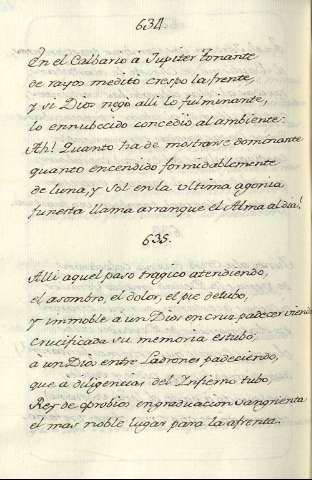 634.
En el Calbario à Jupiter tonante
de rayos meditò crespo la frente,
y si Dios negò alli lo fulminante,
lo ennubecido concediò al ambiente:
Ah! Quanto ha de mostrarse dominante
quanto encendido formidablemente
de luna, y Sol en la ultima agonia
funesta llama arranque el Alma al dia!
635.
Alli aquel paso tragico atendiendo,
el asombro, el dolor, el pie detubo,
y immoble à un Dios en cruz padecer viendo
crucificada su memoria estubo;
à un Dios entre Ladrones padeciendo,
que à diligencias del Infierno tubo,
Rey de oprobios en graduacion sangrienta
el mas noble lugar para la afrenta.